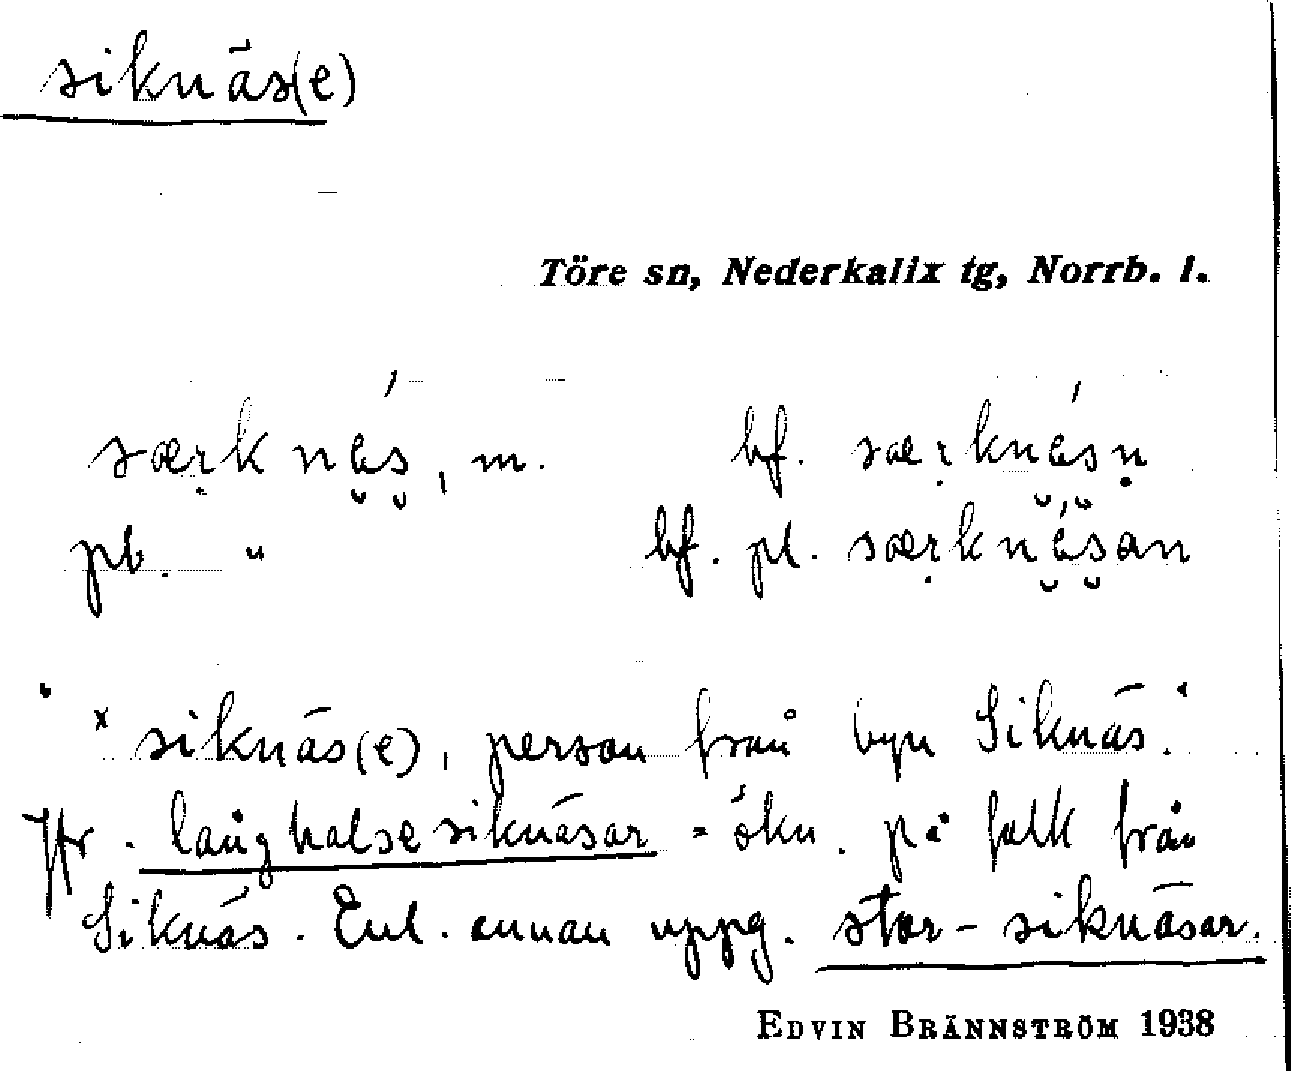 siknäs(e)
Töre sn, Nederkalix tg, Norrb. l.
særknä́s, m. bf. særknä́sn
pl. " bf. pl. særknä́san
"x siknäs(e), person från byn Siknäs."
Jfr. långhalsesiknäsar = ökn. på folk från
Siknäs. Enl. annan uppg. stor-siknäsar.
EDVIN BRÄNNSTRÖM 1938